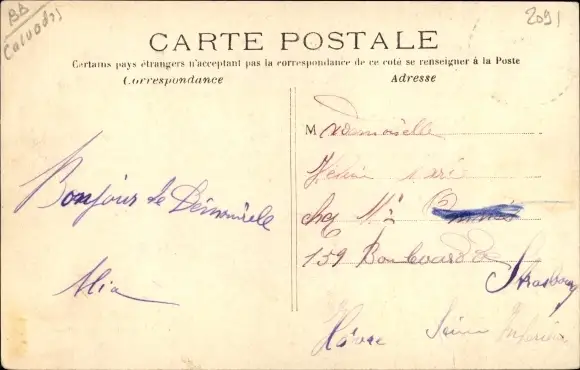 BB
Calvados
2091
CARTE POSTALE
Certains pays étrangers n'acceptant pas la correspondance de ce coté se renseigner à la Poste
Correspondance
Adresse
Bonjour de
Mademoiselle
Marie
chez Mr
159 Boulevard de
Strasbourg
Hâvre Seine Inferieure